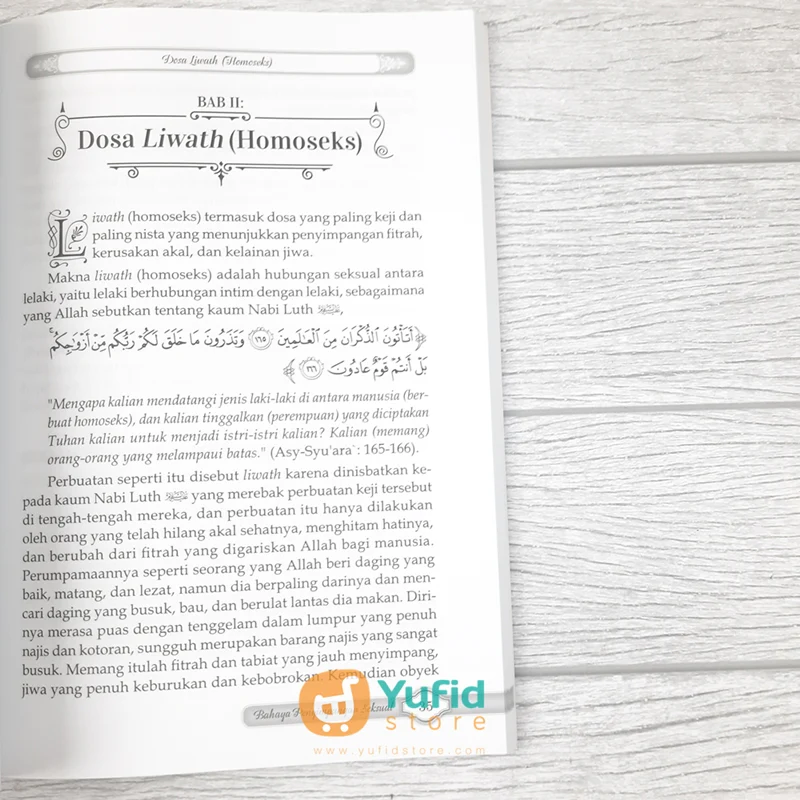 Dosa Liwath (Homoseks)
BAB II:
Dosa Liwath (Homoseks)
Liwath (homoseks) termasuk dosa yang paling keji dan
paling nista yang menunjukkan penyimpangan fitrah,
kerusakan akal, dan kelainan jiwa.
Makna liwath (homoseks) adalah hubungan seksual antara
lelaki, yaitu lelaki berhubungan intim dengan lelaki, sebagaimana
yang Allah sebutkan tentang kaum Nabi Luth,
﴿أَتَأْتُونَ ٱلذُّكْرَانَ مِنَ ٱلْعَٰلَمِينَ ۝١٦٥ وَتَذَرُونَ مَا خَلَقَ لَكُمْ رَبُّكُم مِّنْ أَزْوَٰجِكُم ۚ
بَلْ أَنتُمْ قَوْمٌ عَادُونَ ۝١٦٦﴾
"Mengapa kalian mendatangi jenis laki-laki di antara manusia (ber-
buat homoseks), dan kalian tinggalkan (perempuan) yang diciptakan
Tuhan kalian untuk menjadi istri-istri kalian? Kalian (memang)
orang-orang yang melampaui batas." (Asy-Syu'ara`: 165-166).
Perbuatan seperti itu disebut liwath karena dinisbatkan ke-
pada kaum Nabi Luth yang merebak perbuatan keji tersebut
di tengah-tengah mereka, dan perbuatan itu hanya dilakukan
oleh orang yang telah hilang akal sehatnya, menghitam hatinya,
dan berubah dari fitrah yang digariskan Allah bagi manusia.
Perumpamaannya seperti seorang yang Allah beri daging yang
baik, matang, dan lezat, namun dia berpaling darinya dan men-
cari daging yang busuk, bau, dan berulat lantas dia makan. Diri-
nya merasa puas dengan tenggelam dalam lumpur yang penuh
najis dan kotoran, sungguh merupakan barang najis yang sangat
busuk. Memang itulah fitrah dan tabiat yang jauh menyimpang,
jiwa yang penuh keburukan dan kebobrokan. Kemudian obyek
Bahaya Seksual 35
Yufid
store
www.yufidstore.com